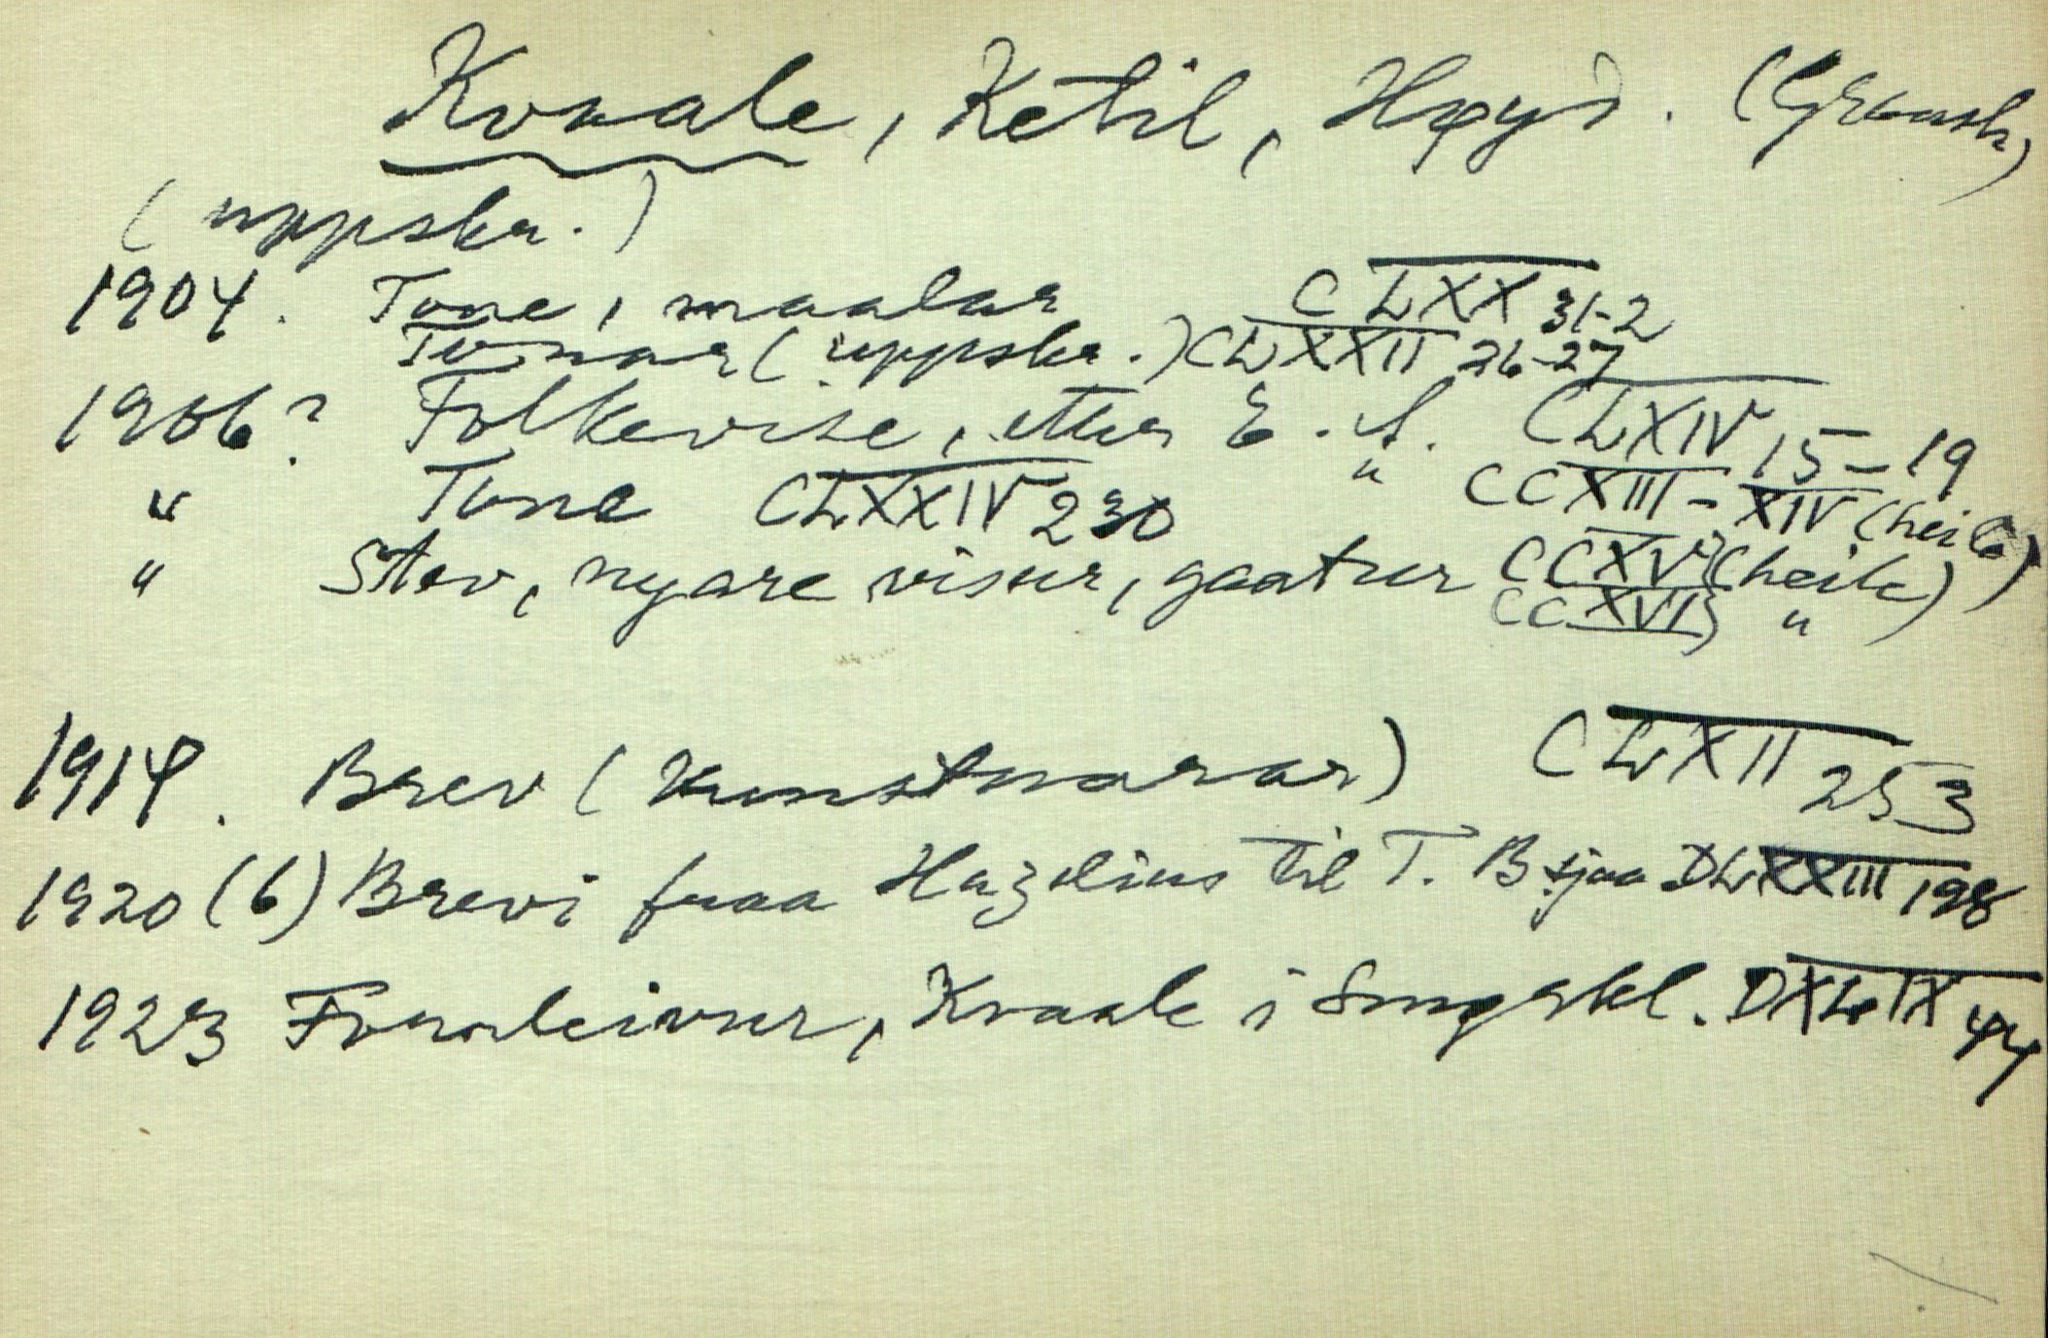 Kvaale, Ketil, Høyd. (Gransh.)
(uppskr.)
1904. Tone, maalar CLXX 31-2
Tonar (uppskr.) CLXXII 26-27
1906? Folkevise, etter E. S. CLXIV 15-19
" Tone CLXXIV 230 " CCXIII-XIV (heile)
" Stev, nyare visur, gaatur CCXV (heile)
CCXVI "
1914. Brev (Kunstnarar) CLXII 253
1920 (6) Brevi fraa Hazelius til T. Bsjaa DLXXXIII 198
1923 Fornleivur, Kvaale i DXLIX 44